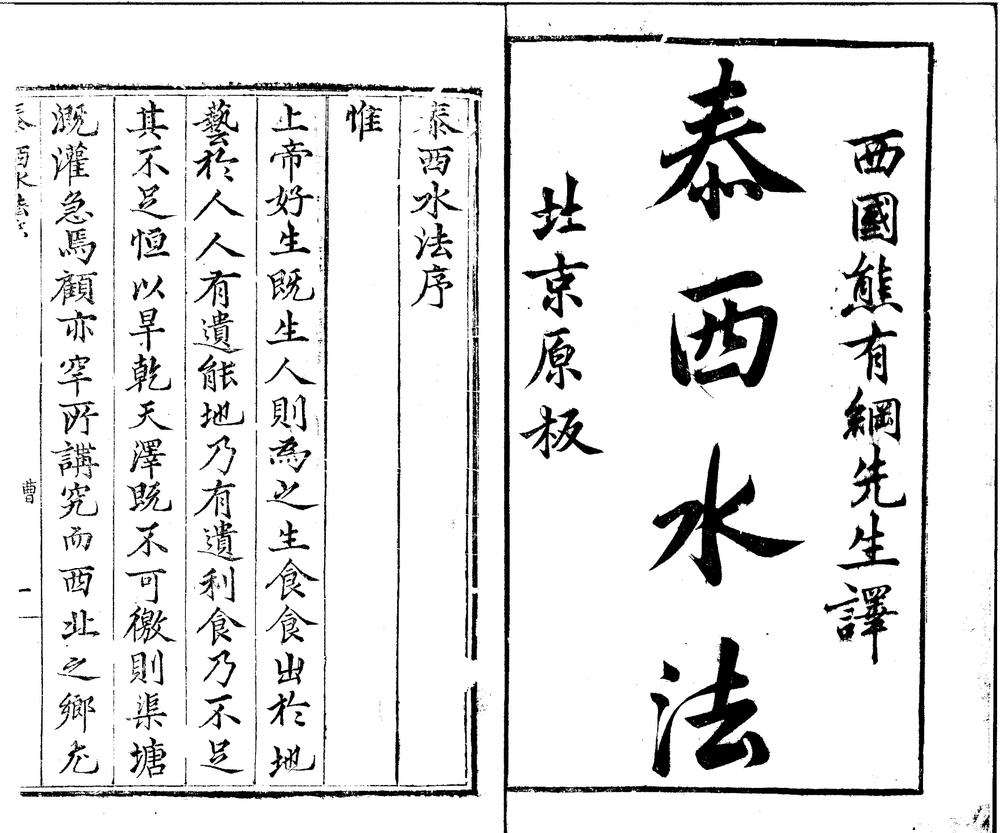 西國熊有綱先生譯
泰西水法
北京原板
泰西水法序
惟
上帝好生既生人則為之生食食出於地
藝於人人有遺能地乃有遺利食乃不足
其不足恒以旱乾天澤既不可徼則渠塘
溉灌急焉顧亦罕所講究而西北之鄉尤
泰西水法序
曹
一